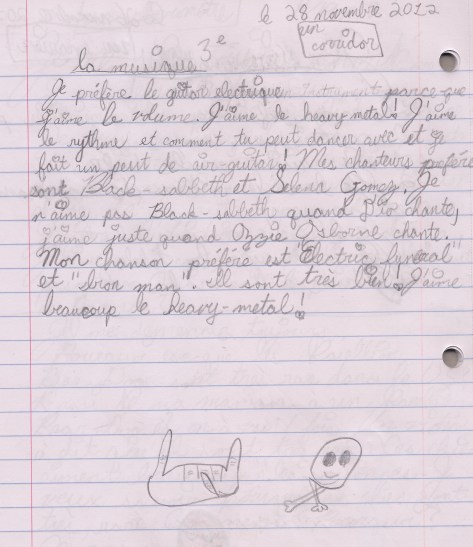 le 28 novembre 2012
un
corridor
la musique 3e
Je préfère le guitar électrique parce que
j'aime le volume. J'aime le heavy metal! J'aime
le rythme et comment tu peut dancer avec et je
fait un peut de air-guitar! Mes chanteurs préféré
sont Black-sabbeth et Selena Gomez. Je
n'aime pas Black-sabbeth quand Dio chante,
j'aime juste quand Ozzie Osborne chante.
Mon chanson préféré est "Électric funeral"
et "Iron man". Il sont très bien! J'aime
beaucoup le heavy-metal!